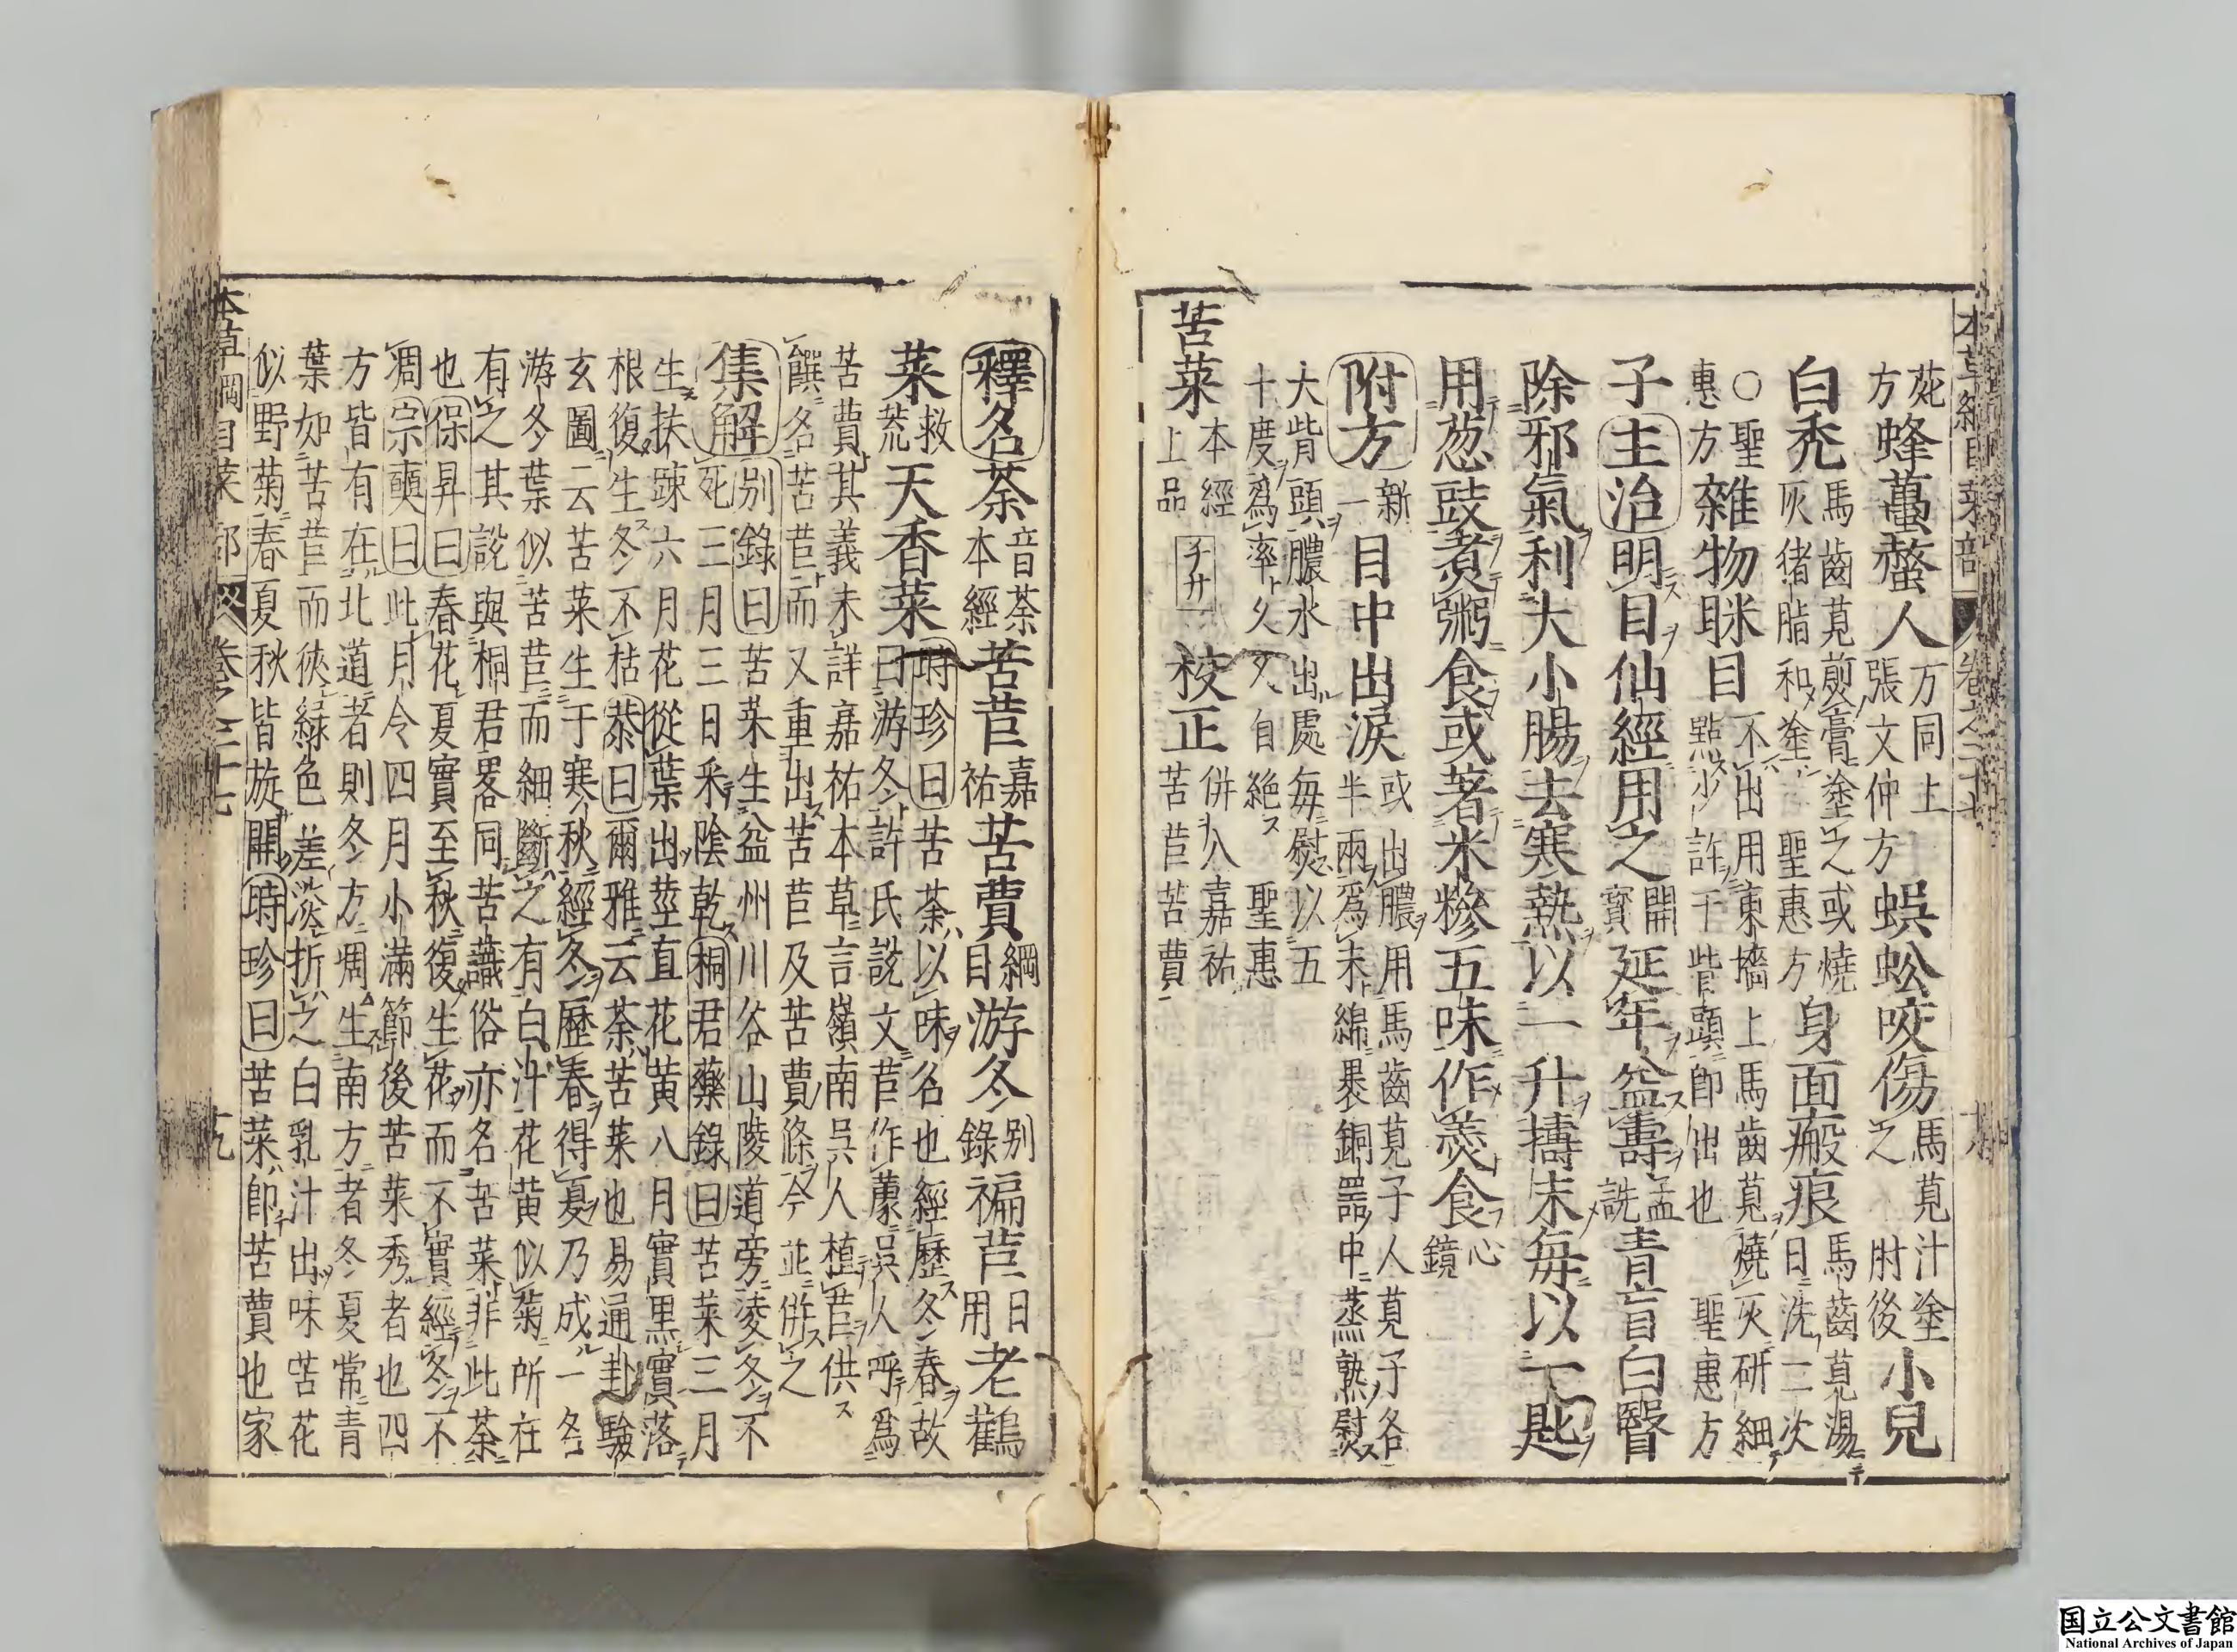 本草綱目菜部 卷之二十七
茺方同上蜂蠆螫人張文仲方蜈蚣咬傷馬莧汁塗之肘後小兒
白禿馬齒莧煎膏塗之或燒灰猪脂和塗聖惠方身面瘢痕馬齒莧湯日洗二次
○聖惠方雜物眯目不出用東墻上馬齒莧燒灰研細點少許于眥頭即出也聖惠方
子主治明目仙經用之開寶延年益壽孟詵青盲白瞖
除邪氣利大小腸去寒熱以一升擣末每以一匙
用葱豉煮粥食或著米糝五味作羹食心鏡
附方新一目中出淚或出膿用馬齒莧子人莧子各半兩爲末綿裹銅噐中蒸熟熨
大眥頭膿水出處每熨以五十度爲率久久自絶聖惠
苦菜本經上品 校正併入嘉祐苦苣苦蕒
釋名荼音荼本經苦苣嘉祐苦蕒綱目游冬別錄褊苣日用老鸛
菜救荒天香菜時珍曰苦荼以味名也經歷冬春故曰游冬許氏說文苣作蘪吳人呼爲
苦蕒其義未詳嘉祐本草言嶺南吳人植苣供
饌名苦苣而又重出苦苣及苦蕒條今並併之
集解別錄曰苦菜生益州川谷山陵道旁淩冬不死三月三日采陰乾桐君藥錄曰苦菜三月
生扶踈六月花從葉出莖直花黃八月實黑實落
根復生冬不枯恭曰爾雅云荼苦菜也易通卦驗
玄圖云苦菜生于寒秋經冬歷春得夏乃成一名
游冬葉似苦苣而細斷之有白汁花黃似菊所在
有之其說與桐君畧同苦蘵俗亦名苦菜非此荼
也保昇曰春花夏實至秋復生花而不實經冬不
凋宗奭曰此月令四月小滿節後苦菜秀者也四
方皆有在北道者則冬方凋生南方者冬夏常青
葉如苦苣而狹綠色差淡折之白乳汁出味苦花
似野菊春夏秋皆旋開時珍曰苦菜即苦蕒也家
本草綱目菜部 卷之二十七
国立公文書館
National Archives of Japan